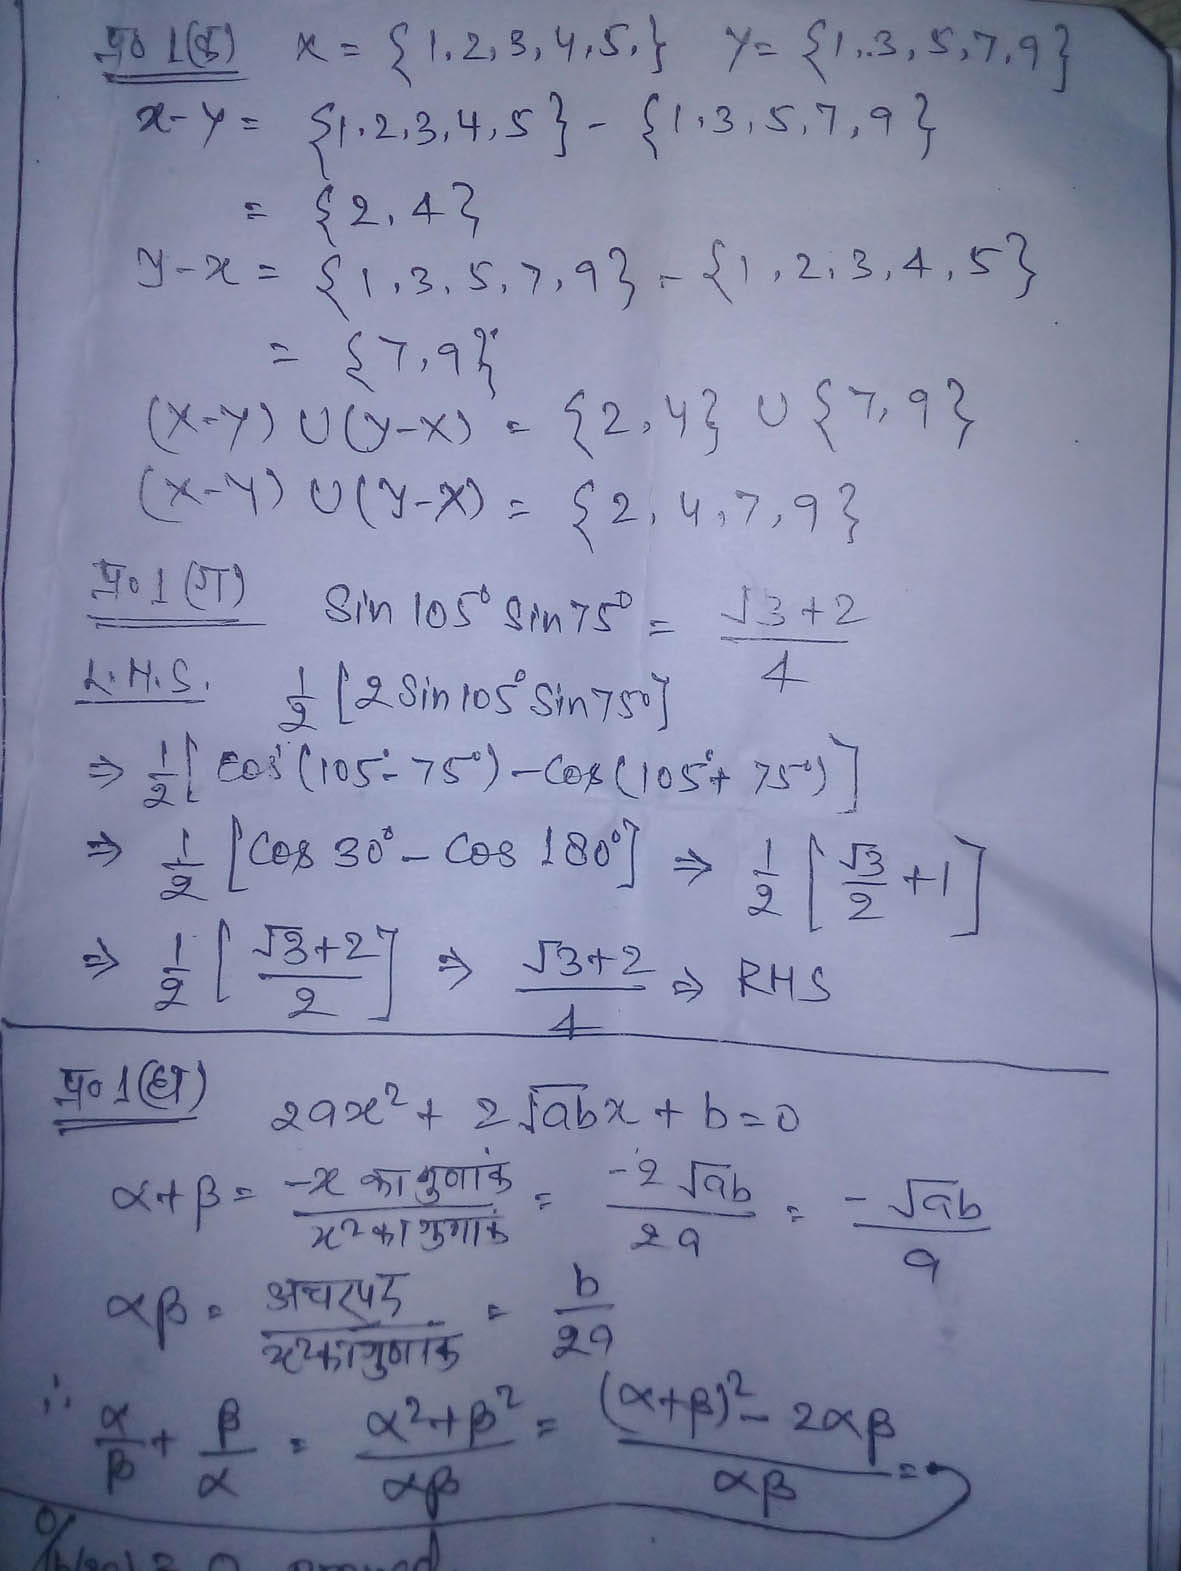 प्र० 1(ङ) x = {1,2,3,4,5,} y = {1,3,5,7,9}
x-y = {1,2,3,4,5} - {1,3,5,7,9}
= {2,4}
y-x = {1,3,5,7,9} - {1,2,3,4,5}
= {7,9}
(x-y) ∪ (y-x) = {2,4} ∪ {7,9}
(x-y) ∪ (y-x) = {2,4,7,9}
प्र० 1(ग) Sin 105° Sin 75° = √3+2/4
L.H.S. 1/2 [2 Sin 105° Sin 75°]
⇒ 1/2 [Cos (105°-75°) - Cos (105°+75°)]
⇒ 1/2 [Cos 30° - Cos 180°] ⇒ 1/2 [√3/2 +1]
⇒ 1/2 [√3+2/2] ⇒ √3+2/4 ⇒ RHS
प्र० 1(घ) 2ax² + 2√ab x + b = 0
α+β = -x का गुणांक/x² का गुणांक = -2√ab/2a = -√ab/a
αβ = अचर पद/x² का गुणांक = b/2a
∴ α/β + β/α = α²+β²/αβ = (α+β)² - 2αβ/αβ =